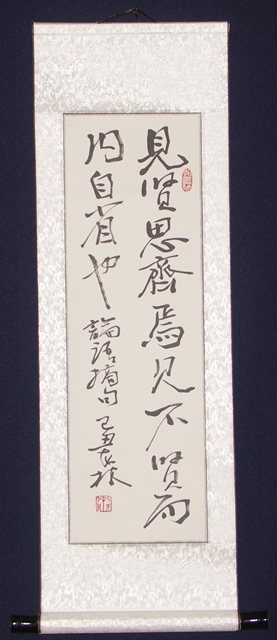 見贤思齊焉見不贤而
内自省也 論語摘句 己丑 林